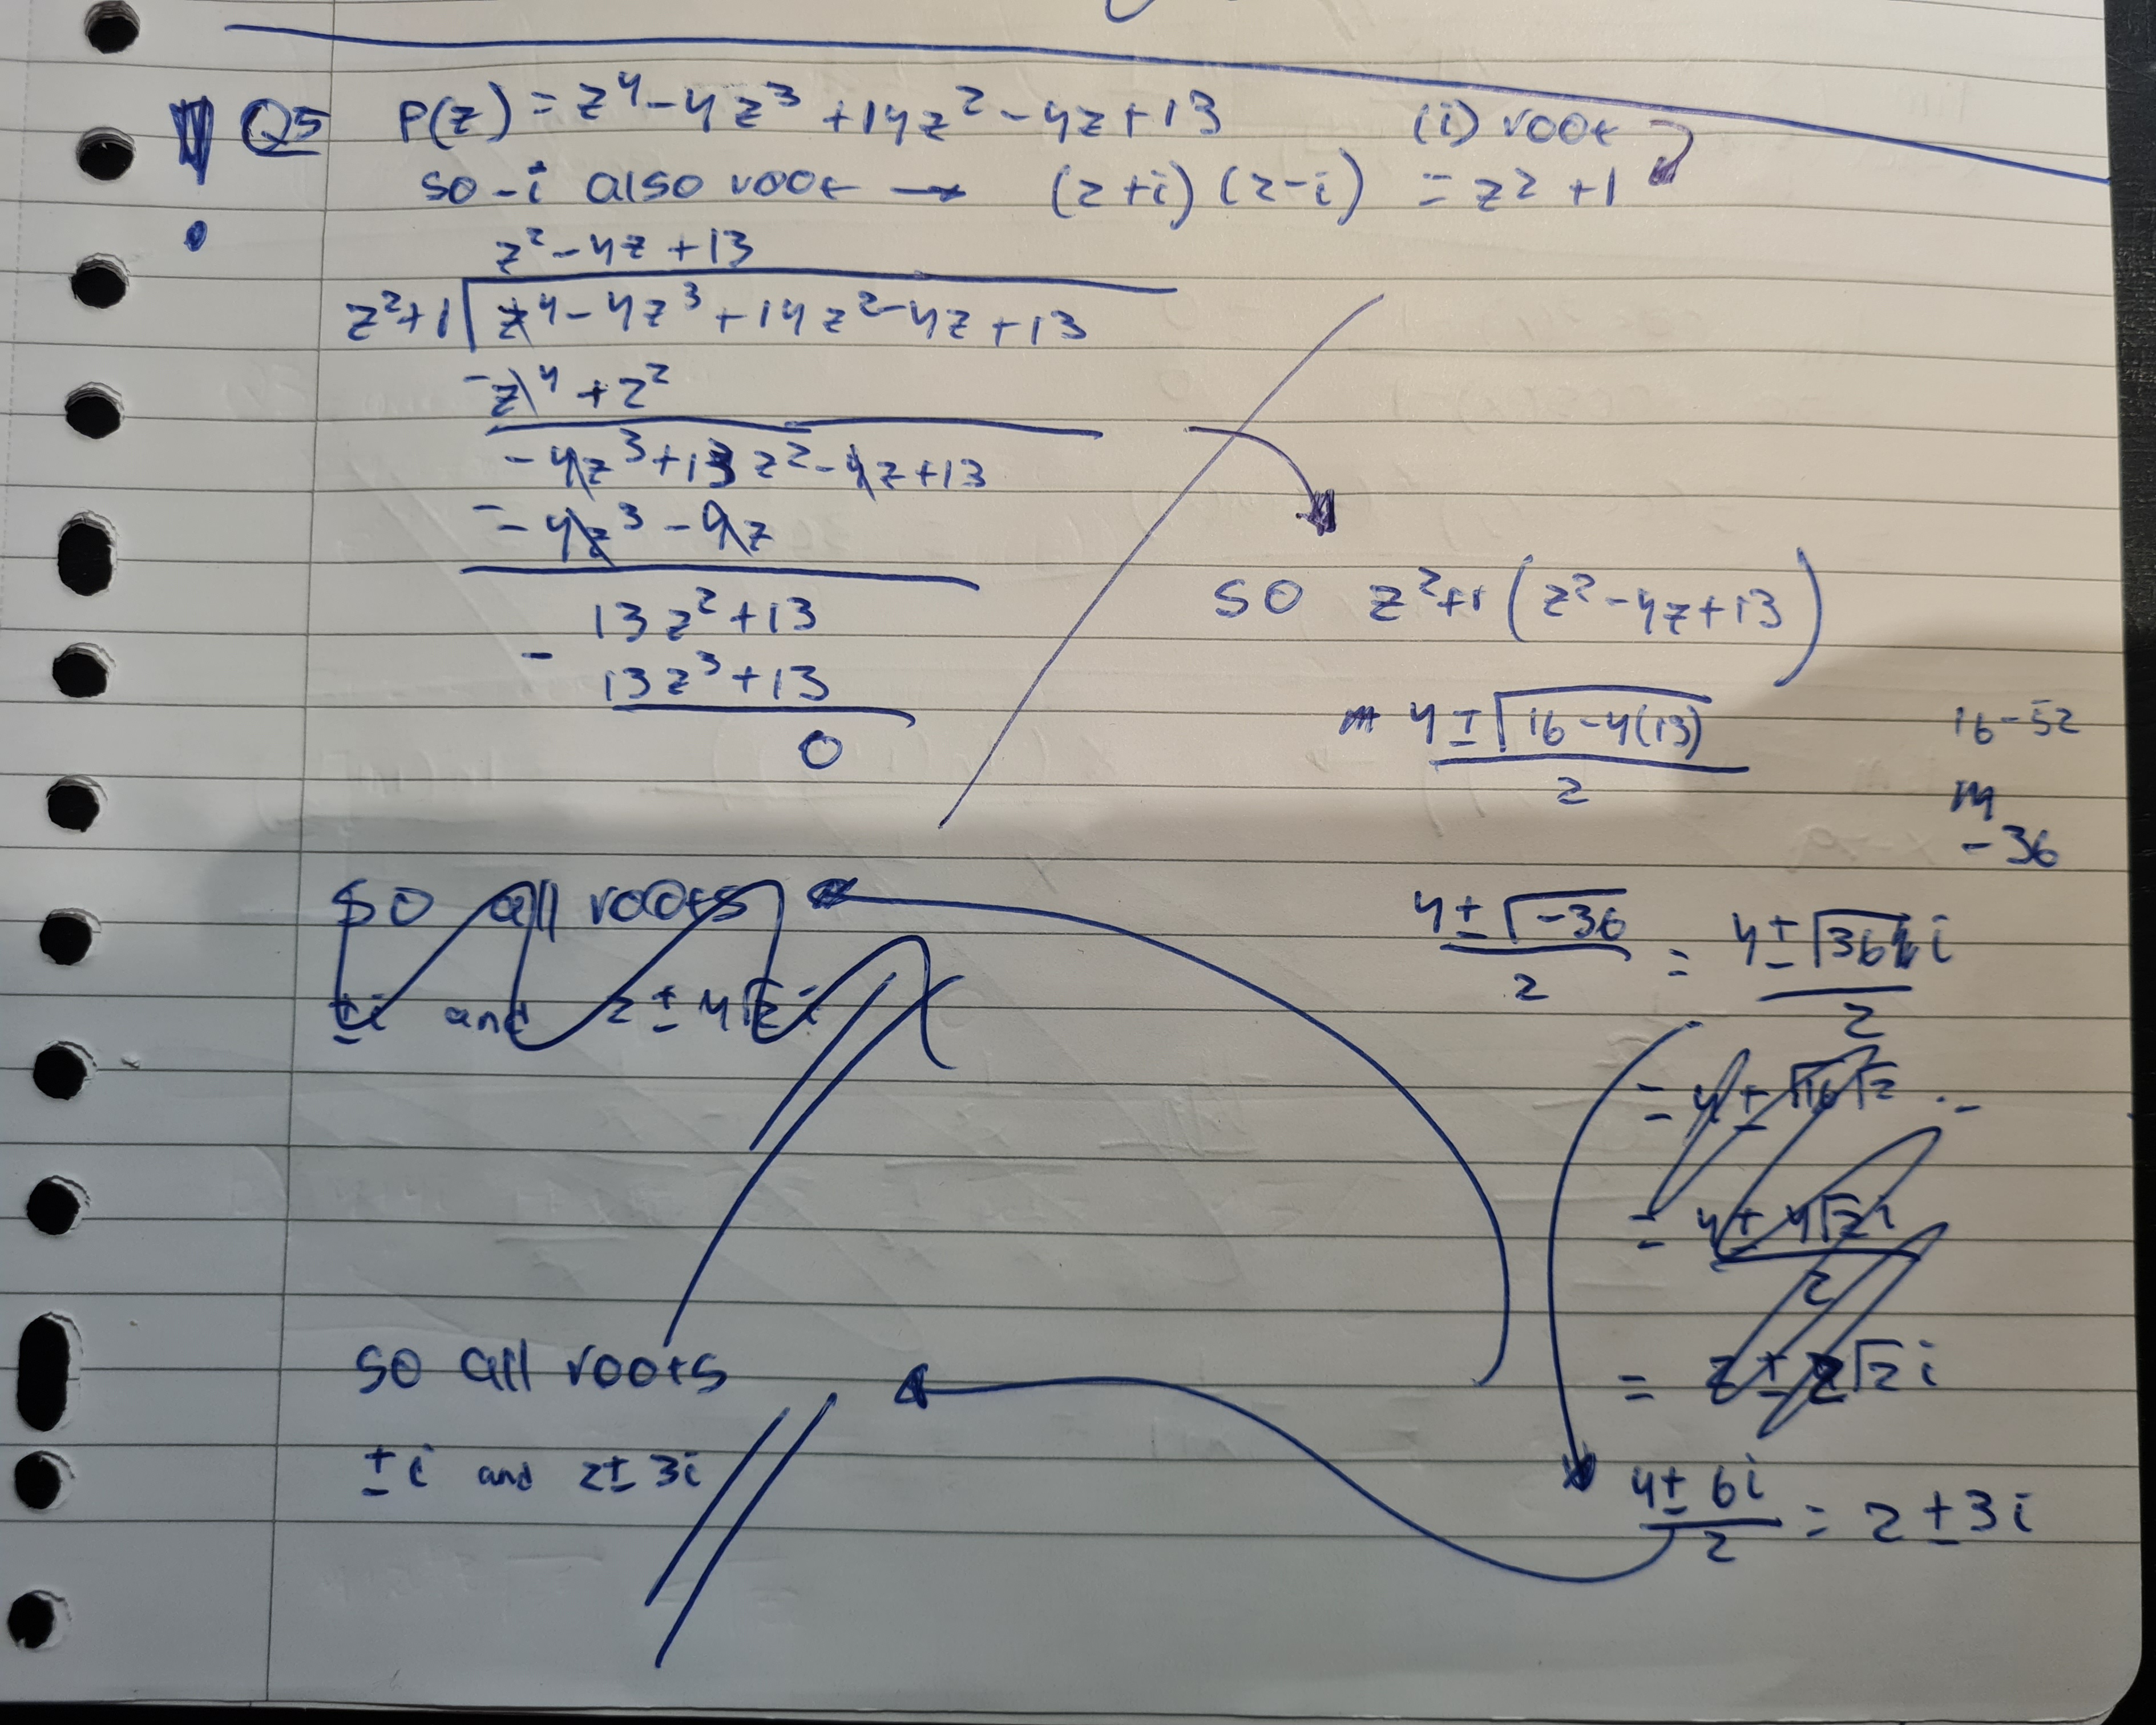 Q5 P(z) = z⁴ - 4z³ + 14z² - 4z + 13 (i) root
so -i also root → (z+i)(z-i) = z² + 1
z² - 4z + 13
z²+1 | z⁴ - 4z³ + 14z² - 4z + 13
- z⁴ + z²
- 4z³ + 13z² - 4z + 13
- - 4z³ - 4z
13z² + 13
- 13z³ + 13
0
so z²+1 (z² - 4z + 13)
4 ± √16 - 4(13)
2
16 - 52
- 36
4 ± √-36 / 2 = 4 ± √36 i / 2
= 4 ± √16√2
= 4 ± 4√2 i / 2
= 2 ± 2√2 i
4 ± 6i / 2 = 2 ± 3i
so all roots
±i and 2 ± 4√2 i
so all roots
±i and 2 ± 3i